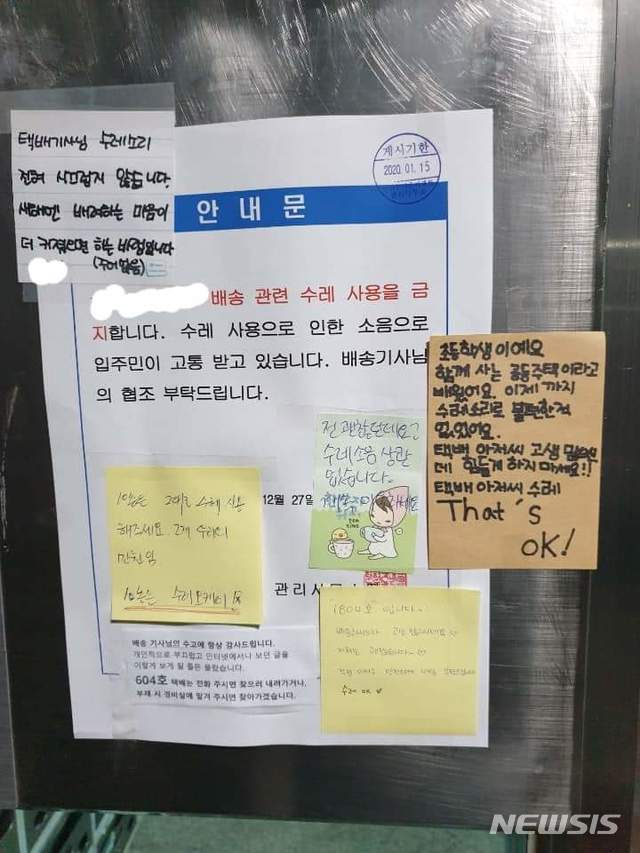 택배기사님 수레소리
전혀 시끄럽지 않습니다.
배려하는 마음이
더 커졌으면 하는 바램입니다
게시기한
2020. 01. 15
안 내 문
배송 관련 수레 사용을 금
지합니다. 수레 사용으로 인한 소음으로
입주민이 고통 받고 있습니다. 배송기사님
의 협조 부탁드립니다.
12월 27일
관리사무소
초등학생이예요
함께 사는 공동주택이라고
배웠어요. 이제까지
수레소리로 불편한적
없었어요.
택배 아저씨 고생 많은
데 힘들게 하지마세요!!
택배 아저씨 수레
That's
OK!
전 괜찮던데요?
수레소음 상관
없습니다.
그대로 수레 사용
해주세요.
수레오케이
배송 기사님의 수고에 항상 감사드립니다.
개인적으로 부끄럽고 인터넷에서나 보던 글을
이렇게 보게 될 줄은 몰랐습니다.
604호 택배는 전화 주시면 찾으러 내려가거나,
부재 시 경비실에 맡겨 주시면 찾아가겠습니다.
1804호 입니다.
수레 OK
NEWSIS